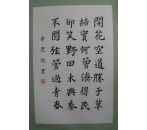 開花空道勝于草
結實何曾濟得民
卻笑野田禾與黍
不聞弦管過青春